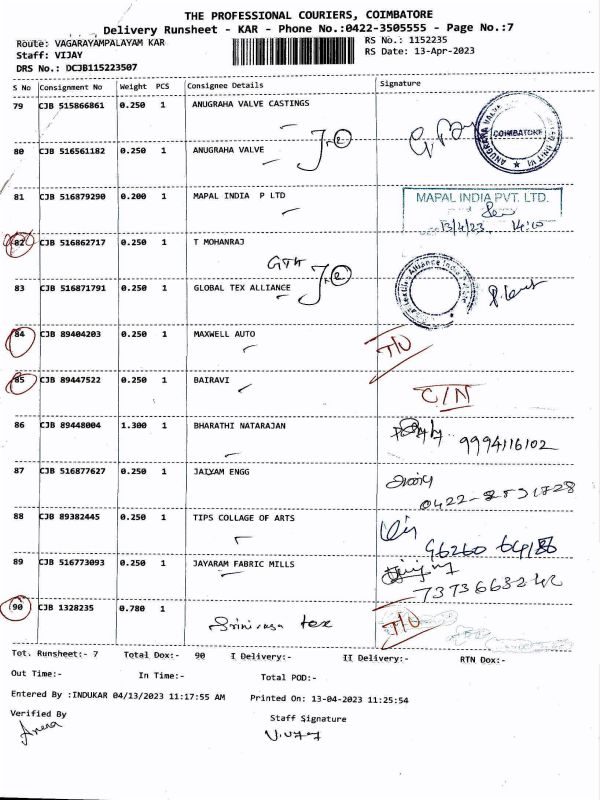 THE PROFESSIONAL COURIERS, COIMBATORE
Delivery Runsheet - KAR - Phone No.:0422-3505555 - Page No.:7
Route: VAGARAYAMPALAYAM KAR
RS No.: 1152235
Staff: VIJAY
RS Date: 13-Apr-2023
DRS No.: DCJB115223507
S No Consignment No Weight PCS Consignee Details Signature
79 CJB 515866861 0.250 1 ANUGRAHA VALVE CASTINGS
COIMBATORE
80 CJB 516561182 0.250 1 ANUGRAHA VALVE
2
81 CJB 516879290 0.200 1 MAPAL INDIA P LTD
MAPAL INDIA PVT. LTD.
13/4/23 14:10
82 CJB 516862717 0.250 1 T MOHANRAJ
GTA
83 CJB 516871791 0.250 1 GLOBAL TEX ALLIANCE
2
84 CJB 89404203 0.250 1 MAXWELL AUTO
T/U
85 CJB 89447522 0.250 1 BAIRAVI
C/N
86 CJB 89448004 1.300 1 BHARATHI NATARAJAN
9994116102
87 CJB 516877627 0.250 1 JAIYAM ENGG
88 CJB 89382445 0.250 1 TIPS COLLAGE OF ARTS
89 CJB 516773093 0.250 1 JAYARAM FABRIC MILLS
90 CJB 1328235 0.780 1
Srinivasa tex
T/U
Tot. Runsheet:- 7 Total Dox:- 90 I Delivery:- II Delivery:- RTN Dox:-
Out Time:- In Time:- Total POD:-
Entered By :INDUKAR 04/13/2023 11:17:55 AM Printed On: 13-04-2023 11:25:54
Verified By
Staff Signature